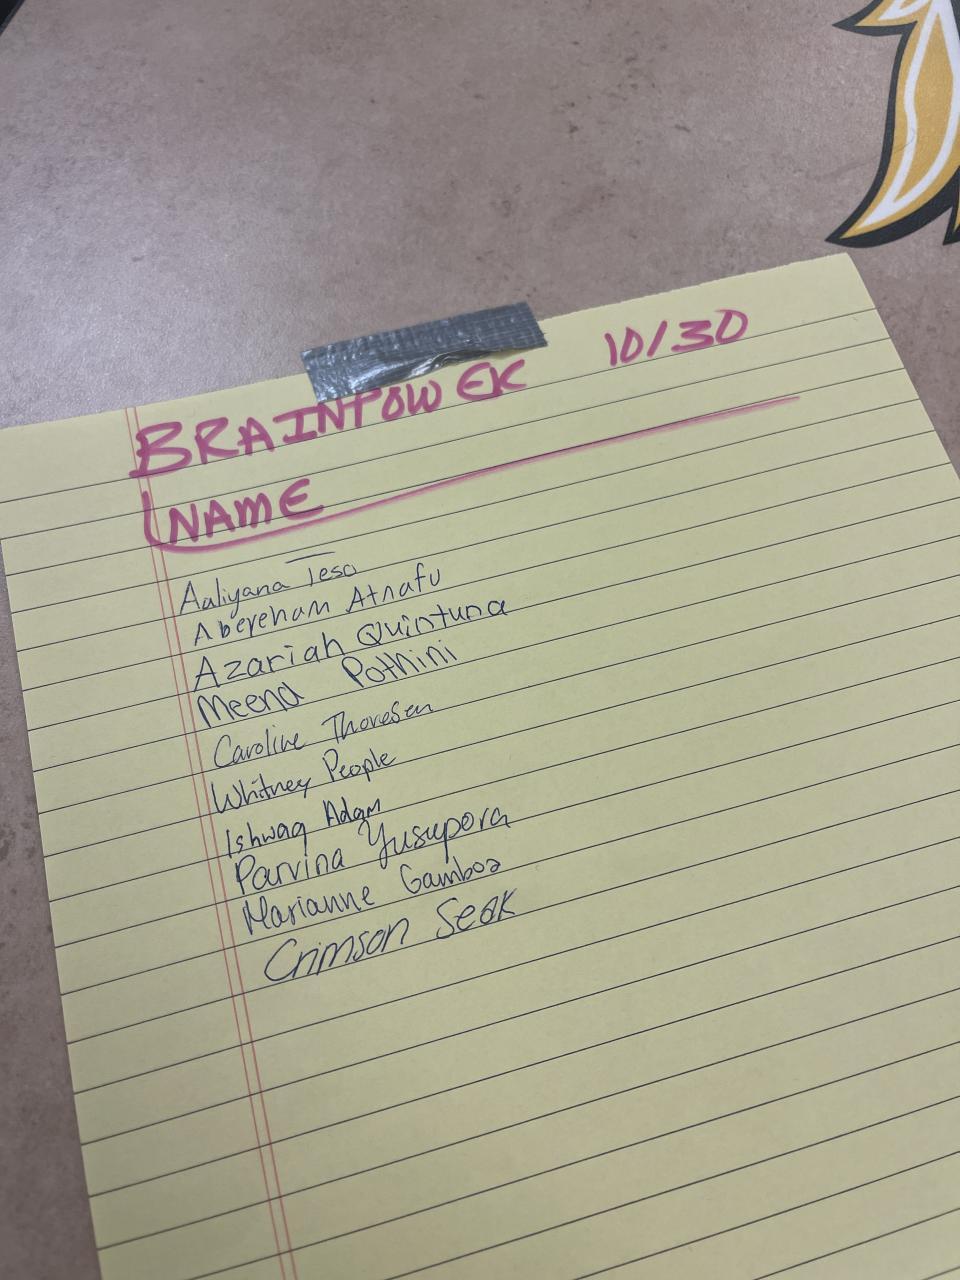 BRAINPOWER 10/30
NAME
Aaliyana Teso
Abereham Atnafu
Azariah Quintuna
Meena Pothini
Caroline Thoresen
Whitney People
Ishwaq Adam
Parvina Yusupova
Marianne Gamboa
Crimson Seok